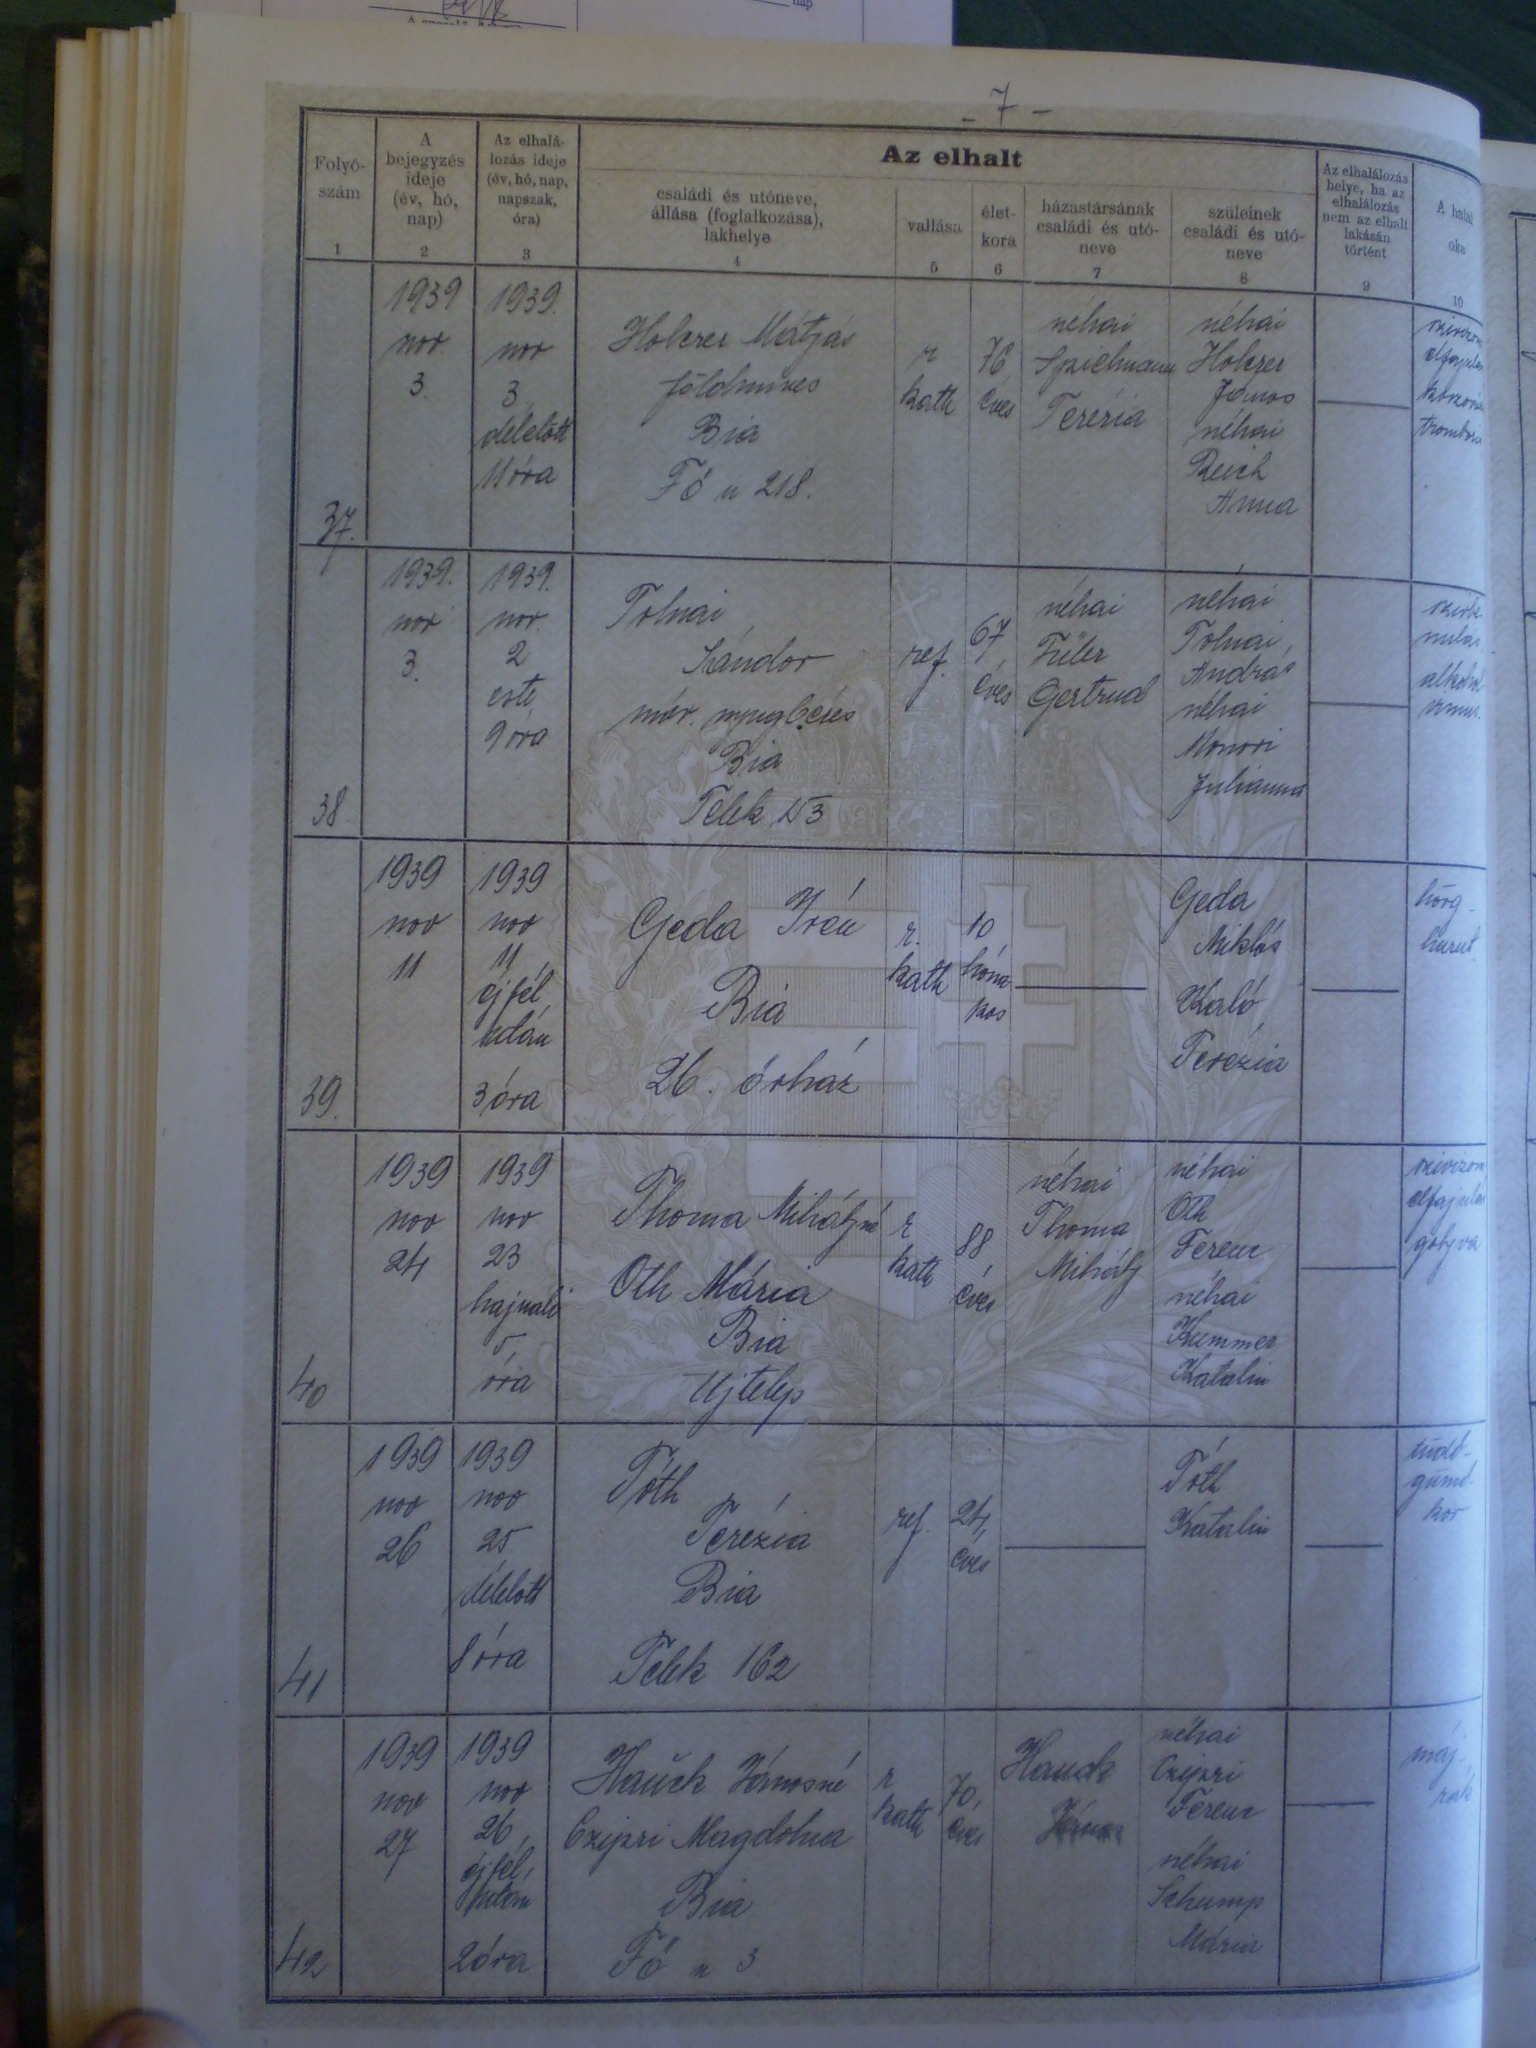 - 7 -
Az elhalt
Folyó-
szám
1
A
bejegyzés
ideje
(év, hó,
nap)
2
Az elhalá-
lozás ideje
(év, hó, nap,
napszak,
óra)
3
családi és utóneve,
állása (foglalkozása),
lakhelye
4
vallása
5
élet-
kora
6
házastársának
családi és utó-
neve
7
szüleinek
családi és utó-
neve
8
Az elhalálozás
helye, ha az
elhalálozás
nem az elhalt
lakásán
történt
9
A halál
oka
10
37.
1939
nov.
3.
1939.
nov
3
délelőtt
11 óra
Holczer Mátyás
földmíves
Bia
Fő u 218.
r
kath
76
éves
néhai
Spielmann
Terézia
néhai
Holczer
János
néhai
Reich
Anna
szívizom
elfajulás
38
1939.
nov
3.
1939.
nov.
2
este
9 óra
Tolnai
Sándor
máv. nyugbéres
Bia
Telek 153
ref.
67
éves
néhai
Füler
Gertrud
néhai
Tolnai
András
néhai
Monori
Julianna
39.
1939
nov
11
1939
nov
11
éjfél
után
3 óra
Geda Irén
Bia
26. őrház
r.
kath
10
hóna
pos
Geda
Miklós
Kaló
Terézia
hörg-
hurut
40
1939
nov
24
1939
nov
23
hajnali
5
óra
Thoma Mihályné
Oth Mária
Bia
Ujtelep
r
kath
88
éves
néhai
Thoma
Mihály
néhai
Oth
Ferenc
néhai
Kummer
Katalin
szívizom
elfajulás
golyva
41
1939
nov
26
1939
nov
25
délelőtt
8 óra
Tóth
Terézia
Bia
Telek 162
ref.
24
éves
Tóth
Katalin
tüdő-
gümő-
kór
42
1939
nov
27
1939
nov
26
éjfél
után
2 óra
Hauck Jánosné
Czipri Magdolna
Bia
Fő u 3
r
kath
70
éves
Hauck
János
néhai
Czipri
Ferenc
néhai
Schump
Mária
máj-
rák